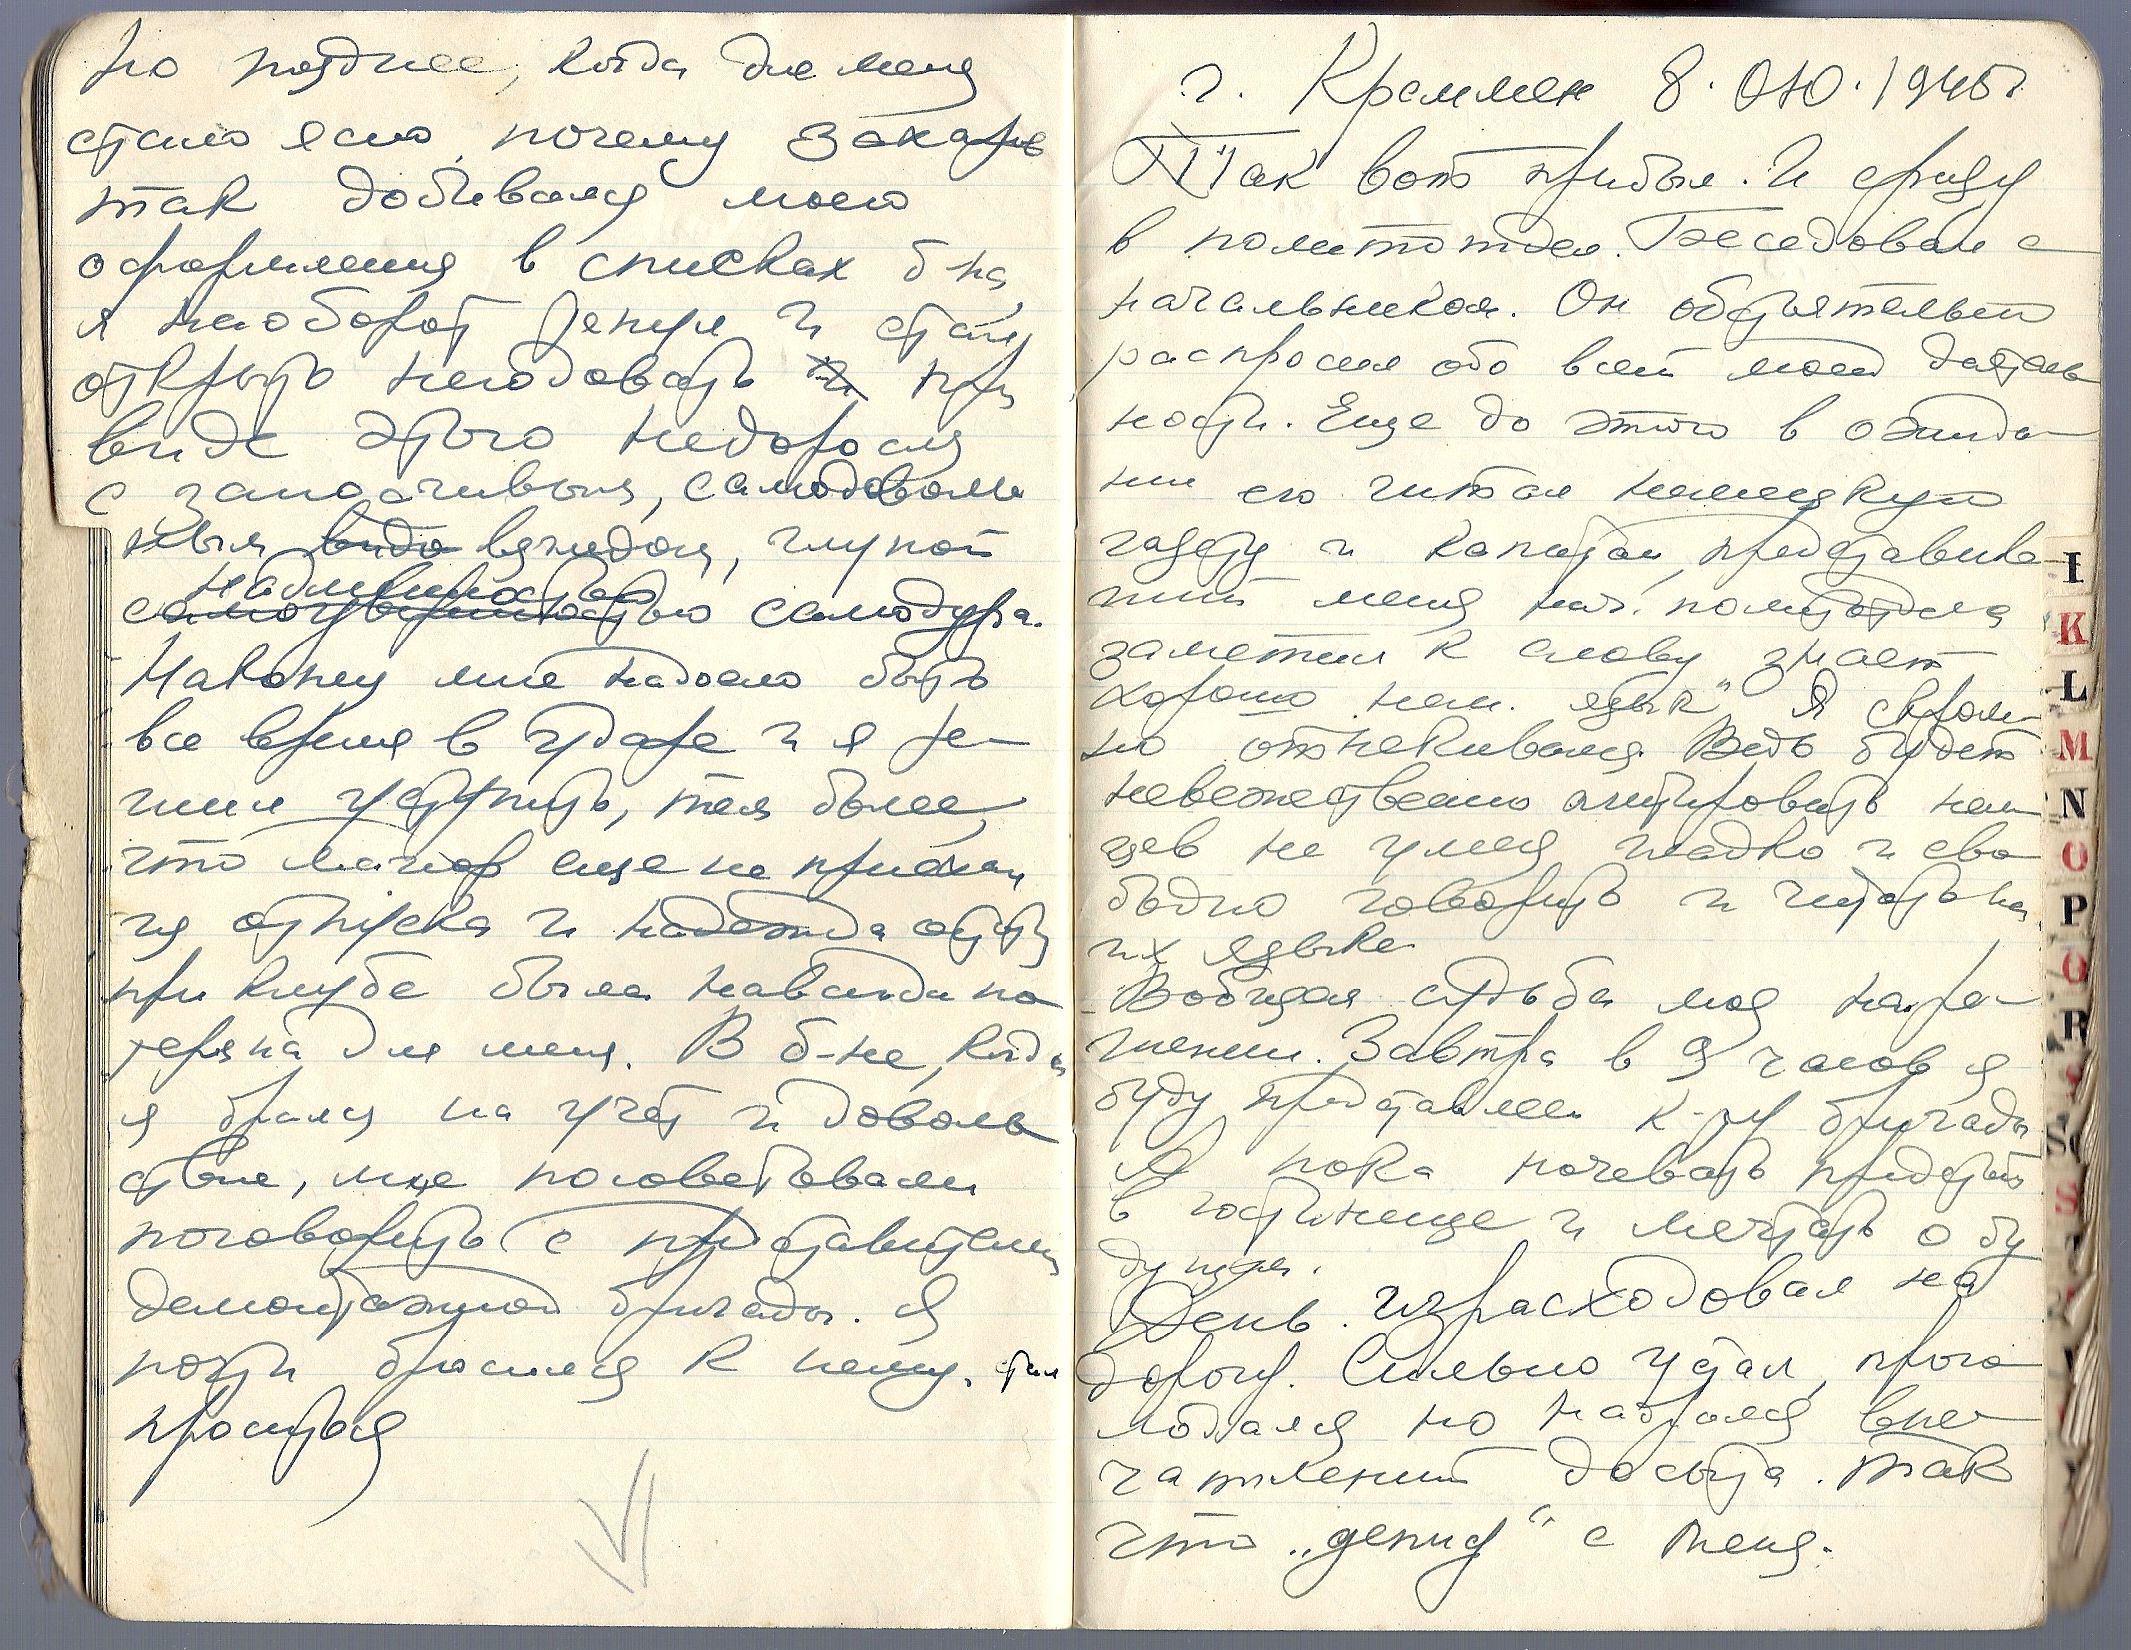 но позднее, когда для меня
стало ясно, почему Захаров
так добивался моего
оформления в списках б-на,
я наоборот решил и стал
открыто негодовать при
виде этого недоросля
с заносчивым, самодоволь
ным видо взглядом, глупой
надменностью
самоуверенностью самодура.
Наконец мне надоело быть
все время в ударе и я ре-
шил уступить, тем более,
что майор еще не приехал
из отпуска и надежда остать
при клубе была навсегда по
теряна для меня. В б-не, когда
я брался на учёт и доволь
ствие, мне посоветовали
поговорить с представителем
демонтажной бригады. Я
почти бросился к нему, стал
проситься
г. Креммен 8. Окт. 1945 г.
Так вот прибыл. И сразу
в политотдел. Беседовал с
начальником. Он обстоятельно
расспросил обо всей моей деятель
ности. Еще до этого в ожида-
нии его читал немецкую
газету и капитан, представив-
ший меня нач. политотдела
заметил к слову „знает
хорошо нем. язык" Я скром-
но отнекивался. Ведь будет
невежественно агитировать нем
цев не умея гладко и сво
бодно говорить и читать на
их языке
Вобщем судьба моя на ре-
шении. Завтра в 9 часов я
буду представлен к-ру бригады
А пока ночевать придется
в гостинице и мечтать о бу
дущем.
День израсходовал на
дорогу. Сильно устал, прого-
лодался но набрался впе-
чатлений досыта. Так
что „цепця" с меня.
I
K
L
M
N
O
P
Q
R
S